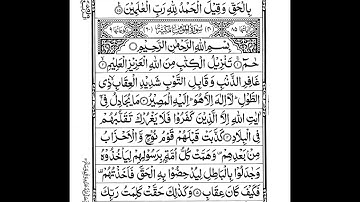 بِالْحَقِّ وَقِيْلَ الْحَمْدُ لِلّٰهِ رَبِّ الْعٰلَمِيْنَ
سُوْرَةُ الْمُؤْمِنِ مَكِّيَّةٌ
بِسْمِ اللّٰهِ الرَّحْمٰنِ الرَّحِيْمِ
حٰمٓ تَنْزِيْلُ الْكِتٰبِ مِنَ اللّٰهِ الْعَزِيْزِ الْعَلِيْمِ
غَافِرِ الذَّنْۢبِ وَقَابِلِ التَّوْبِ شَدِيْدِ الْعِقَابِ ذِى
الطَّوْلِ لَاۤ اِلٰهَ اِلَّا هُوَ اِلَيْهِ الْمَصِيْرُ مَا يُجَادِلُ فِيْۤ
اٰيٰتِ اللّٰهِ اِلَّا الَّذِيْنَ كَفَرُوْا فَلَا يَغْرُرْكَ تَقَلُّبُهُمْ
فِى الْبِلَادِ كَذَّبَتْ قَبْلَهُمْ قَوْمُ نُوْحٍ وَّالْاَحْزَابُ
مِنْۢ بَعْدِهِمْ وَهَمَّتْ كُلُّ اُمَّةٍۢ بِرَسُوْلِهِمْ لِيَاْخُذُوْهُ
وَجٰدَلُوْا بِالْبَاطِلِ لِيُدْحِضُوْا بِهِ الْحَقَّ فَاَخَذْتُهُمْ
فَكَيْفَ كَانَ عِقَابِ وَكَذٰلِكَ حَقَّتْ كَلِمَتُ رَبِّكَ